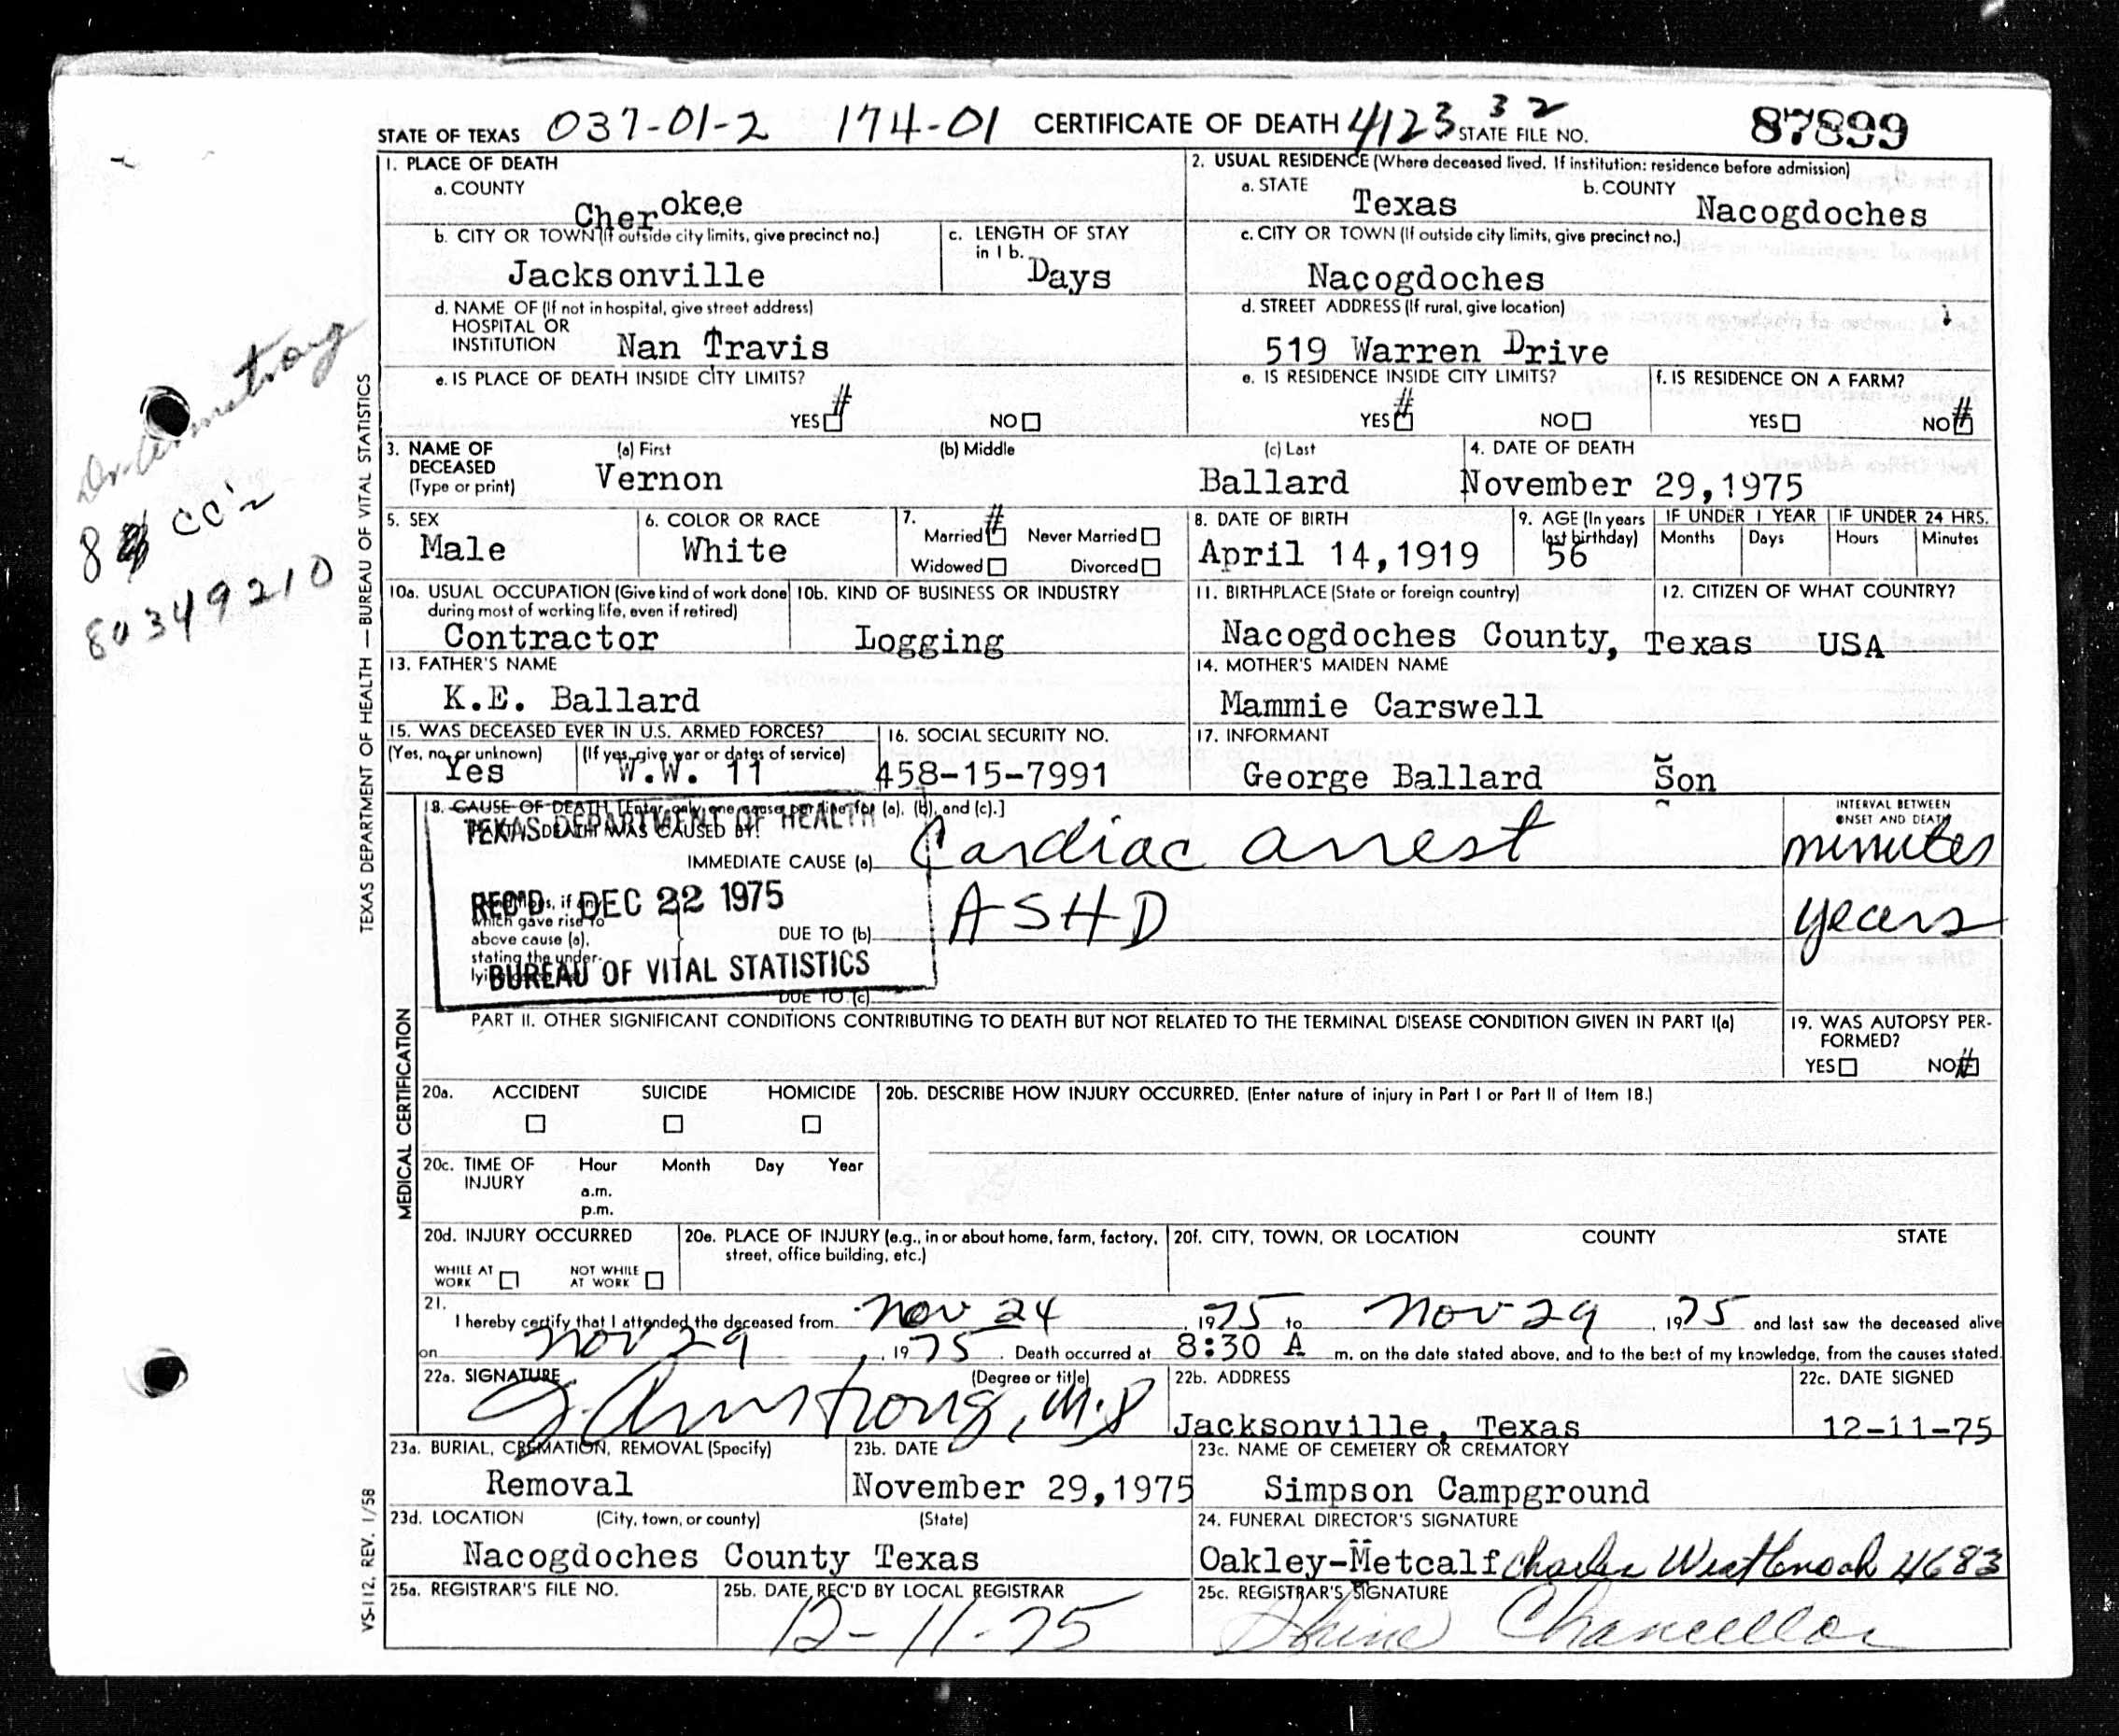 STATE OF TEXAS 037-01-2 174-01 CERTIFICATE OF DEATH 4123 32 STATE FILE NO. 87899
1. PLACE OF DEATH
a. COUNTY
Cherokee
2. USUAL RESIDENCE (Where deceased lived. If institution: residence before admission)
a. STATE Texas b. COUNTY Nacogdoches
b. CITY OR TOWN (If outside city limits, give precinct no.)
Jacksonville
c. LENGTH OF STAY
in 1 b.
Days
c. CITY OR TOWN (If outside city limits, give precinct no.)
Nacogdoches
d. NAME OF (If not in hospital, give street address)
HOSPITAL OR
INSTITUTION Nan Travis
d. STREET ADDRESS (If rural, give location)
519 Warren Drive
e. IS PLACE OF DEATH INSIDE CITY LIMITS?
YES # NO
e. IS RESIDENCE INSIDE CITY LIMITS?
YES # NO
f. IS RESIDENCE ON A FARM?
YES NO #
3. NAME OF
DECEASED
(Type or print)
(a) First
Vernon
(b) Middle
(c) Last
Ballard
4. DATE OF DEATH
November 29,1975
5. SEX
Male
6. COLOR OR RACE
White
7.
Married # Never Married
Widowed Divorced
8. DATE OF BIRTH
April 14,1919
9. AGE (In years
last birthday)
56
IF UNDER 1 YEAR
Months Days
IF UNDER 24 HRS.
Hours Minutes
10a. USUAL OCCUPATION (Give kind of work done
during most of working life, even if retired)
Contractor
10b. KIND OF BUSINESS OR INDUSTRY
Logging
11. BIRTHPLACE (State or foreign country)
Nacogdoches County, Texas
12. CITIZEN OF WHAT COUNTRY?
USA
13. FATHER'S NAME
K.E. Ballard
14. MOTHER'S MAIDEN NAME
Mammie Carswell
15. WAS DECEASED EVER IN U.S. ARMED FORCES?
(Yes, no, or unknown)
Yes
(If yes, give war or dates of service)
W.W. 11
16. SOCIAL SECURITY NO.
458-15-7991
17. INFORMANT
George Ballard Son
18. CAUSE OF DEATH [Enter only one cause per line for (a), (b), and (c).]
PART I. DEATH WAS CAUSED BY:
IMMEDIATE CAUSE (a) Cardiac arrest
INTERVAL BETWEEN
ONSET AND DEATH
minutes
Conditions, if any,
which gave rise to
above cause (a),
stating the under-
lying cause last.
DUE TO (b) ASHD
years
DUE TO (c)
TEXAS DEPARTMENT OF HEALTH
REC'D DEC 22 1975
BUREAU OF VITAL STATISTICS
PART II. OTHER SIGNIFICANT CONDITIONS CONTRIBUTING TO DEATH BUT NOT RELATED TO THE TERMINAL DISEASE CONDITION GIVEN IN PART I(a)
19. WAS AUTOPSY PER-
FORMED?
YES NO #
20a. ACCIDENT SUICIDE HOMICIDE
20b. DESCRIBE HOW INJURY OCCURRED. (Enter nature of injury in Part I or Part II of Item 18.)
20c. TIME OF
INJURY
Hour Month Day Year
a.m.
p.m.
20d. INJURY OCCURRED
WHILE AT
WORK
NOT WHILE
AT WORK
20e. PLACE OF INJURY (e.g., in or about home, farm, factory,
street, office building, etc.)
20f. CITY, TOWN, OR LOCATION COUNTY STATE
21.
I hereby certify that I attended the deceased from Nov 24, 1975 to Nov 29, 1975 and last saw the deceased alive
on Nov 29, 1975. Death occurred at 8:30 A m. on the date stated above, and to the best of my knowledge, from the causes stated.
22a. SIGNATURE (Degree or title)
J. Armstrong, M.D
22b. ADDRESS
Jacksonville, Texas
22c. DATE SIGNED
12-11-75
23a. BURIAL, CREMATION, REMOVAL (Specify)
Removal
23b. DATE
November 29,1975
23c. NAME OF CEMETERY OR CREMATORY
Simpson Campground
23d. LOCATION (City, town, or county) (State)
Nacogdoches County Texas
24. FUNERAL DIRECTOR'S SIGNATURE
Oakley-Metcalf Charles Westbrook 4683
25a. REGISTRAR'S FILE NO.
25b. DATE REC'D BY LOCAL REGISTRAR
12-11-75
25c. REGISTRAR'S SIGNATURE
Chancellor
TEXAS DEPARTMENT OF HEALTH — BUREAU OF VITAL STATISTICS
MEDICAL CERTIFICATION
VS-112, REV. 1/58
Dr. Armstrong
8 cc's
80349210